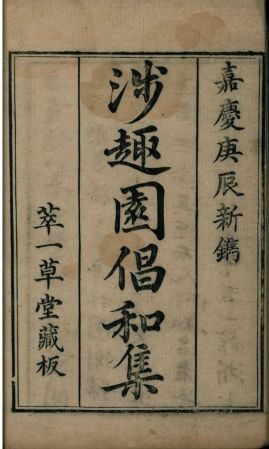 嘉慶庚辰新鐫
涉趣園倡和集
萃一草堂藏板